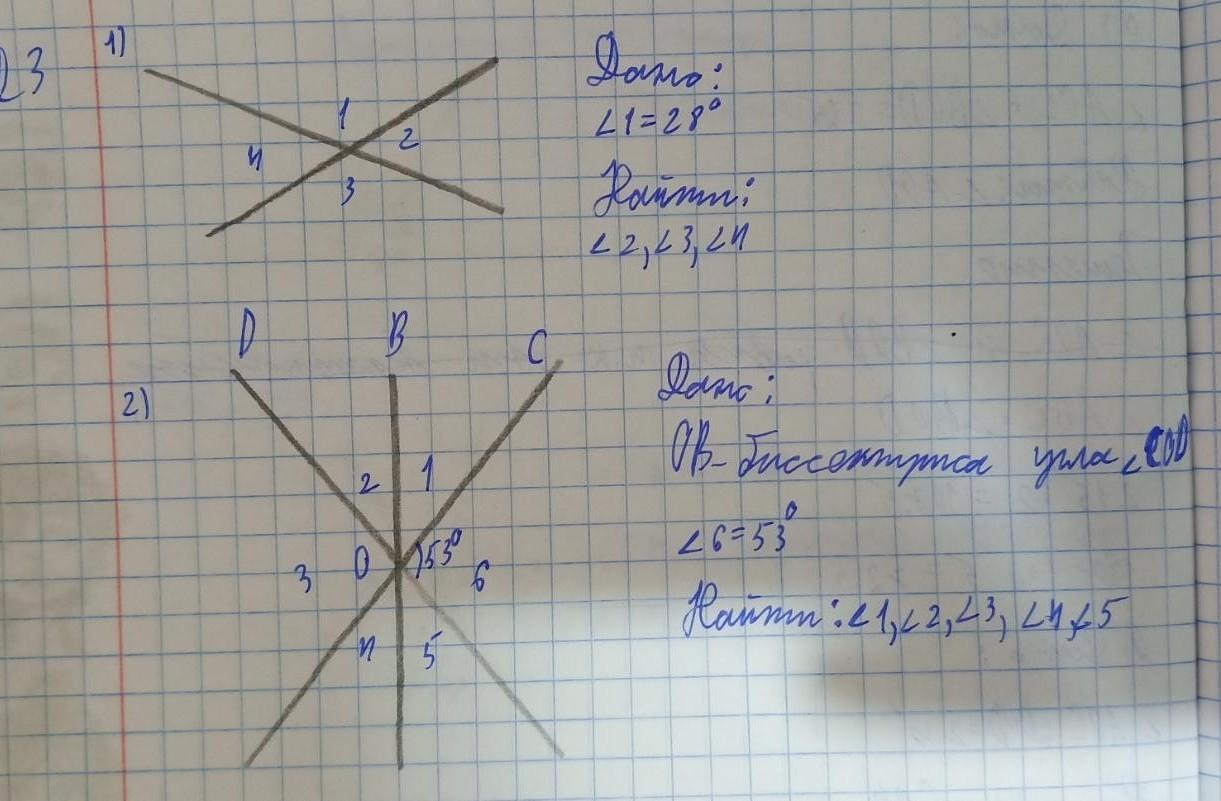 23
1)
1
2
3
4
Дано:
∠1=28°
Найти:
∠2,∠3,∠4
2)
D
B
C
2
1
3
O
53°
6
4
5
Дано:
OB-биссектриса угла ∠COD
∠6=53°
Найти:∠1,∠2,∠3, ∠4,∠5